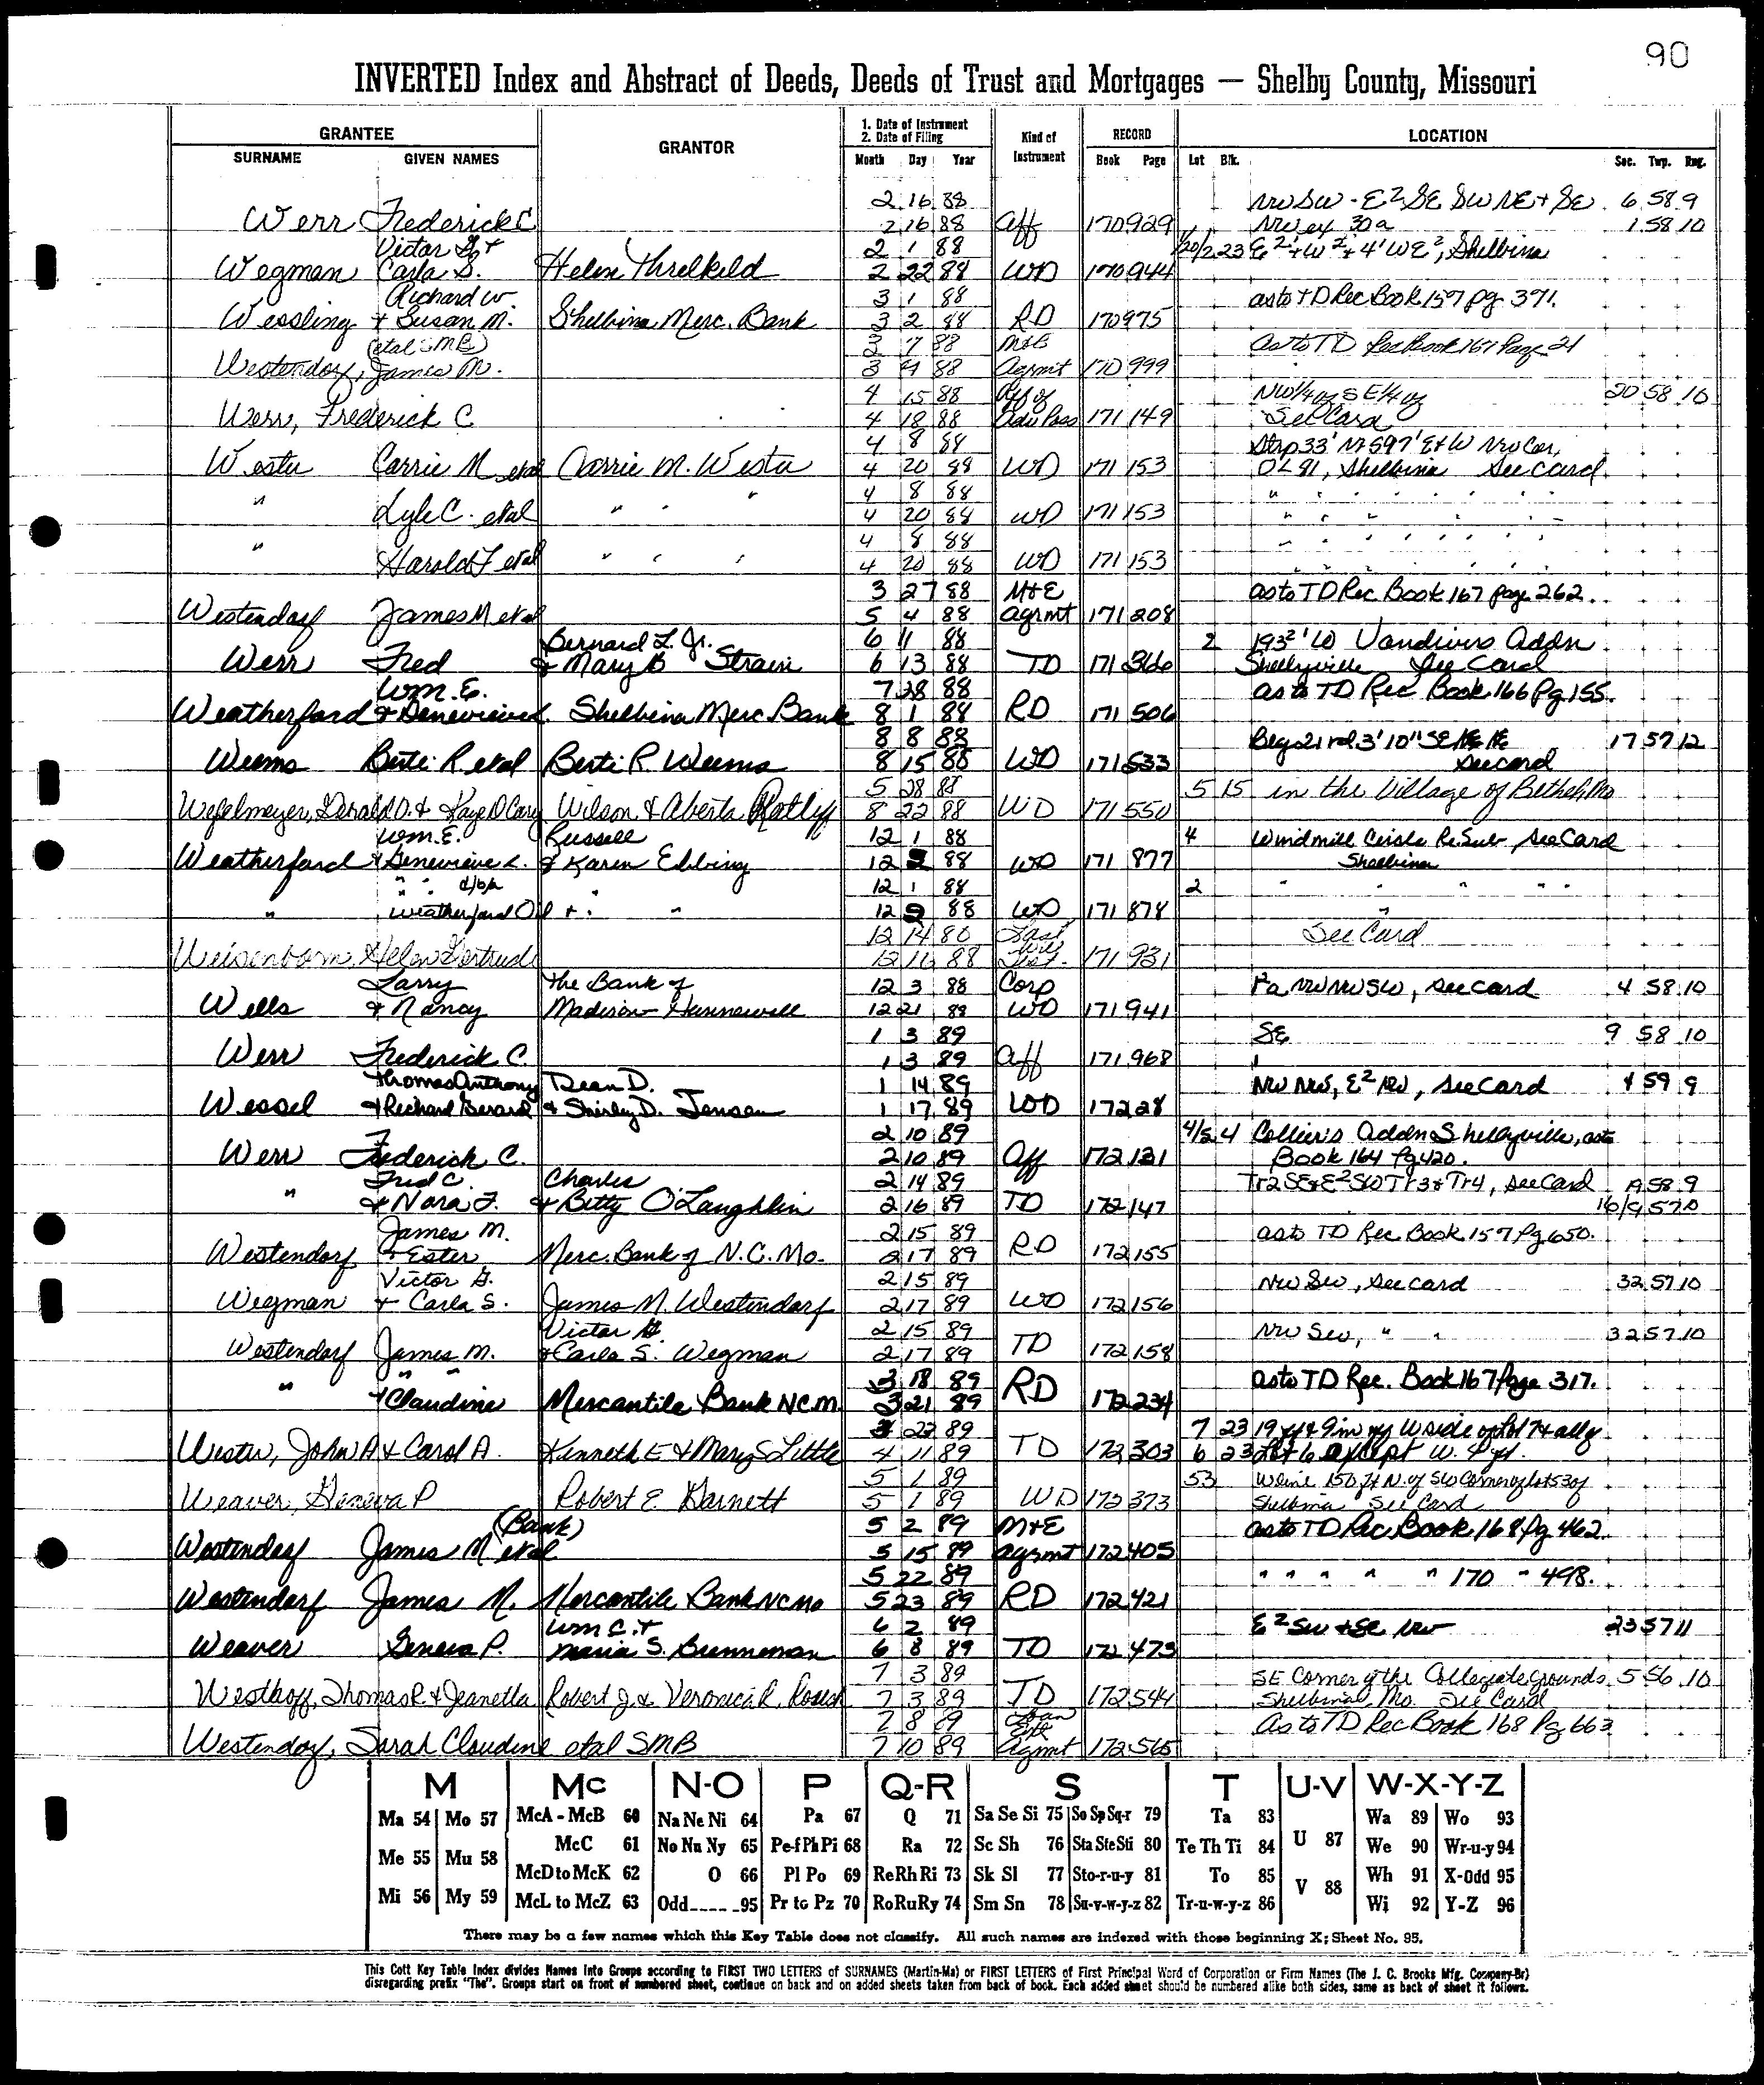 90
INVERTED Index and Abstract of Deeds, Deeds of Trust and Mortgages — Shelby County, Missouri
GRANTEE GRANTOR 1. Date of Instrument 2. Date of Filing Kind of Instrument RECORD LOCATION
SURNAME GIVEN NAMES Month Day Year Book Page Lot Blk. Sec. Twp. Rng.
2 16 88 NWSW - E2SE SWNE + SE 6 58 9
Werr Frederick C 2 16 88 Aff 170 929 NW ex 30a 1 58 10
Victor G + 2 1 88 20/2 23 E2 + W2 + 4' WE2, Shelbina
Wegman Carla S. Helen Threlkeld 2 22 88 WD 170 944
Richard W. 3 1 88 as to TD Rec Book 157 pg 371.
Wessling + Susan M. Shelbina Merc. Bank 3 2 88 RD 170 975
(etal SMB) 3 7 88 M&E as to TD Rec Book 167 Page 21
Westendorf, James M. 3 9 88 Agrmt 170 999
4 15 88 Aff of NW1/4 of SE1/4 of 20 58 10
Werr, Frederick C 4 18 88 Adv Poss 171 149 See Card
4 8 88 Strip 33' NS 597' E+W NW Cor,
Wester Carrie M etal Carrie M. Wester 4 20 88 WD 171 153 OL 91, Shelbina See Card
" 4 8 88 " " " "
" Lyle C. etal " " " 4 20 88 WD 171 153 " " " "
4 8 88 " " " "
" Harold F etal " " " 4 20 88 WD 171 153 " " " "
3 27 88 M+E as to TD Rec Book 167 page 262.
Westendorf James M etal 5 4 88 agrmt 171 208
Bernard L. Jr. 6 11 88 2 193 2' W Vandivers Addn
Werr Fred & Mary B Strain 6 13 88 TD 171 366 Shelbyville See Card
Wm. E. 7 28 88 as to TD Rec Book 166 Pg 155.
Weatherford & Genevieve L. Shelbina Merc Bank 8 1 88 RD 171 506
8 8 88 Beg 21 rd 3' 10" SE NE NE 17 57 12
Weems Berti R etal Berti R. Weems 8 15 88 WD 171 533 see card
5 28 88 5 15 in the Village of Bethel, Mo
Gerald D. & Kaye D Wilson & Aberta Ratliff 8 22 88 WD 171 550
Wm. E. Russell 12 1 88 4 Windmill Circle Re.Sub See Card
Weatherford & Genevieve L. & Karen Ebbing 12 9 88 WD 171 877 Shelbina
" " d/b/a " 12 1 88 2 " " " "
" Weatherford Oil + " " 12 9 88 WD 171 878 "
12 14 80 Last Will See Card
Weisenborn, Helen Gertrude 12 16 88 Test. 171 931
Larry The Bank of 12 3 88 Corp Pa NWNWSW, see card 4 58 10
Wells & Nancy Madison-Hunnewell 12 21 88 WD 171 941
1 3 89 SE 9 58 10
Werr Frederick C. 1 3 89 Aff 171 968
Thomas Anthony Dean D. 1 14 89 NW NW, E2 NW, see card 4 59 9
Wessel & Richard Gerard & Shirley D. Jensen 1 17 89 WD 172 28
2 10 89 4/5 4 Collier's Addn Shelbyville, as to
Werr Frederick C. 2 10 89 Aff 172 131 Book 164 Pg 420.
Fred C. Charles 2 14 89 Tr2 SE & E2 SW Tr3 & Tr4, see card 19 58 9
" & Nora F. & Betty O'Laughlin 2 16 89 TD 172 147
James M. 2 15 89 as to TD Rec Book 157 Pg 650.
Westendorf & Ester Merc. Bank of N.C. Mo. 2 17 89 RD 172 155
Victor G. 2 15 89 NW SW, see card 32 57 10
Wegman & Carla S. James M. Westendorf 2 17 89 WD 172 156
Victor G. 2 15 89 NW SW, " " 32 57 10
Westendorf James M. & Carla S. Wegman 2 17 89 TD 172 158
" " " 3 18 89 as to TD Rec. Book 167 Page 317.
" & Claudine Mercantile Bank NCM. 3 21 89 RD 172 234
3 22 89 7 23 19 ft & 9 in of W side of Lot 7 & ally
Wester, John A & Carol A. Kenneth E & Mary S Little 4 11 89 TD 172 303 6 23 Lot 6 except W. 4 ft.
5 1 89 53 W line 150 ft N. of SW Corner of Lot 53 of
Weaver, Geneva P Robert E. Garnett 5 1 89 WD 172 373 Shelbina See Card
(Bank) 5 2 89 M+E as to TD Rec Book 168 Pg 462.
Westendorf James M etal 5 15 89 agrmt 172 405
5 22 89 " " " " " 170 " 498.
Westendorf James M. Mercantile Bank NC Mo 5 23 89 RD 172 421
Wm C. + 6 2 89 E2 SW + SE NW 23 57 11
Weaver Geneva P. Maria S. Brenneman 6 8 89 TD 172 473
7 3 89 SE Corner of the Collegiate Grounds 5 56 10
Westhoff, Thomas R & Jeanetta Robert J. & Veronica R. Rosech 7 3 89 TD 172 544 Shelbina, Mo. See Card
7 8 89 Loan Ext As to TD Rec Book 168 Pg 663
Westendorf, Sarah Claudine etal SMB 7 10 89 Agmt 172 565
M Mc N-O P Q-R S T U-V W-X-Y-Z
Ma 54 Mo 57 McA - McB 60 Na Ne Ni 64 Pa 67 Q 71 Sa Se Si 75 So Sp Sq-r 79 Ta 83 U 87 Wa 89 Wo 93
Me 55 Mu 58 McC 61 No Nu Ny 65 Pe-f Ph Pi 68 Ra 72 Sc Sh 76 Sta Ste Sti 80 Te Th Ti 84 We 90 Wr-u-y 94
McD to McK 62 O 66 Pl Po 69 Re Rh Ri 73 Sk Sl 77 Sto-r-u-y 81 To 85 V 88 Wh 91 X-Odd 95
Mi 56 My 59 McL to McZ 63 Odd_____95 Pr to Pz 70 Ro Ru Ry 74 Sm Sn 78 Su-v-w-y-z 82 Tr-u-w-y-z 86 Wi 92 Y-Z 96
There may be a few names which this Key Table does not classify. All such names are indexed with those beginning X; Sheet No. 95.
This Cott Key Table Index divides Names Into Groups according to FIRST TWO LETTERS of SURNAMES (Martin-Ma) or FIRST LETTERS of First Principal Word of Corporation or Firm Names (The J. C. Brooks Mfg. Company-Br)
disregarding prefix "The". Groups start on front of numbered sheet, continue on back and on added sheets taken from back of book. Each added sheet should be numbered alike both sides, same as back of sheet it follows.